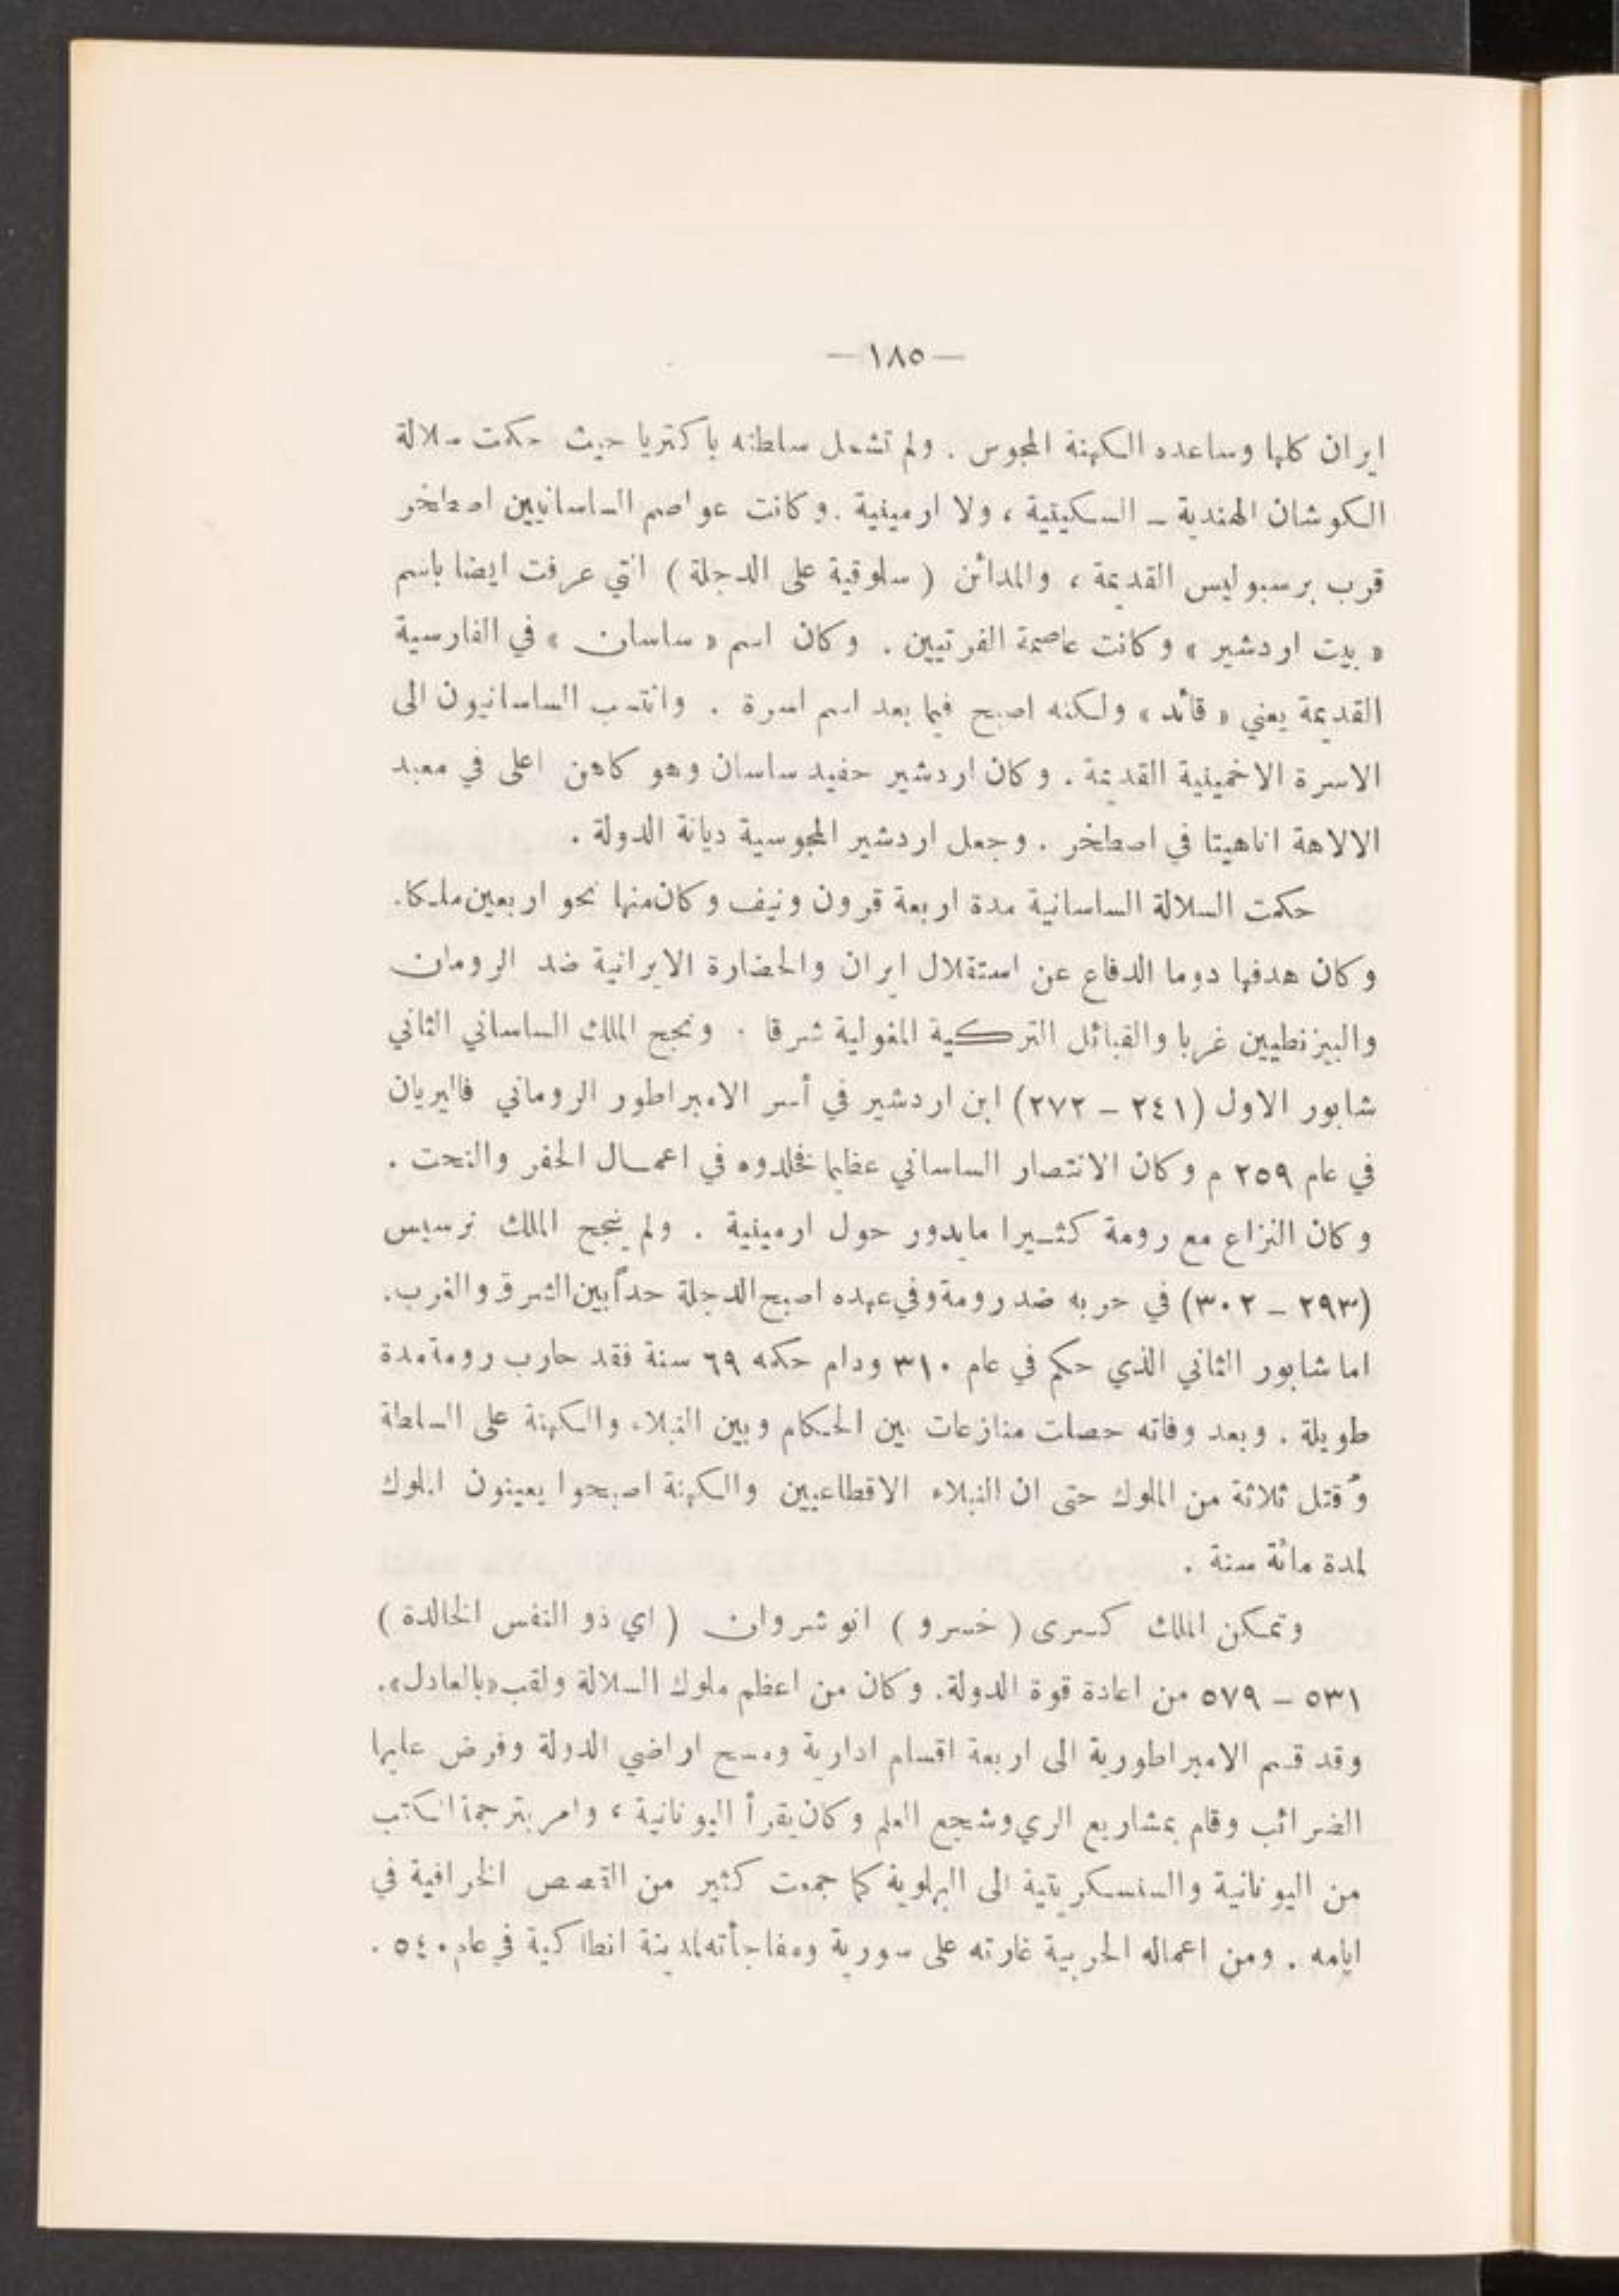 —١٨٥—
ايران كلها وساعده الكهنة المجوس . ولم تشمل سلطته باكتريا حيث حكمت سلالة
الكوشان الهندية ــ السكيتية ، ولا ارمينية . وكانت عواصم الساسانيين اصطخر
قرب برسبوليس القديمة ، والمدائن ( سلوقية على الدجلة ) التي عرفت ايضا باسم
« بيت اردشير » وكانت عاصمة الفرتيين . وكان اسم « ساسان » في الفارسية
القديمة يعني « قائد » ولكنه اصبح فيما بعد اسم اسرة . وانتسب الساسانيون الى
الاسرة الاخمينية القديمة . وكان اردشير حفيد ساسان وهو كاهن اعلى في معبد
الالاهة اناهيتا في اصطخر . وجعل اردشير المجوسية ديانة الدولة .
حكمت السلالة الساسانية مدة اربعة قرون ونيف وكان منها نحو اربعين ملكا .
وكان هدفها دوما الدفاع عن استقلال ايران والحضارة الايرانية ضد الرومان
والبيزنطيين غربا والقبائل التركية المغولية شرقا . ونجح الملك الساساني الثاني
شابور الاول (٢٤١ – ٢٧٢) ابن اردشير في أسر الامبراطور الروماني فاليريان
في عام ٢٥٩ م وكان الانتصار الساساني عظيما فخلدوه في اعمال الحفر والنحت .
وكان النزاع مع رومة كثيرا مايدور حول ارمينية . ولم ينجح الملك نرسيس
(٢٩٣ – ٣٠٢) في حربه ضد رومة وفي عهده اصبح الدجلة حداً بين الشرق والغرب .
اما شابور الثاني الذي حكم في عام ٣١٠ ودام حكمه ٦٩ سنة فقد حارب رومة مدة
طويلة . وبعد وفاته حصلت منازعات بين الحكام وبين النبلاء والكهنة على السلطة
وُقتل ثلاثة من الملوك حتى ان النبلاء الاقطاعيين والكهنة اصبحوا يعينون الملوك
لمدة مائة سنة .
وتمكن الملك كسرى ( خسرو ) انو شروان ( اي ذو النفس الخالدة )
٥٣١ – ٥٧٩ من اعادة قوة الدولة . وكان من اعظم ملوك السلالة ولقب «بالعادل» .
وقد قسم الامبراطورية الى اربعة اقسام ادارية ومسح اراضي الدولة وفرض عليها
الضرائب وقام بمشاريع الري وشجع العلم وكان يقرأ اليونانية ، وامر بترجمة الكتب
من اليونانية والسنسكريتية الى البهلوية كما جمعت كثير من القصص الخرافية في
ايامه . ومن اعماله الحربية غارته على سورية ومفاجأته لمدينة انطاكية في عام ٥٤٠ .